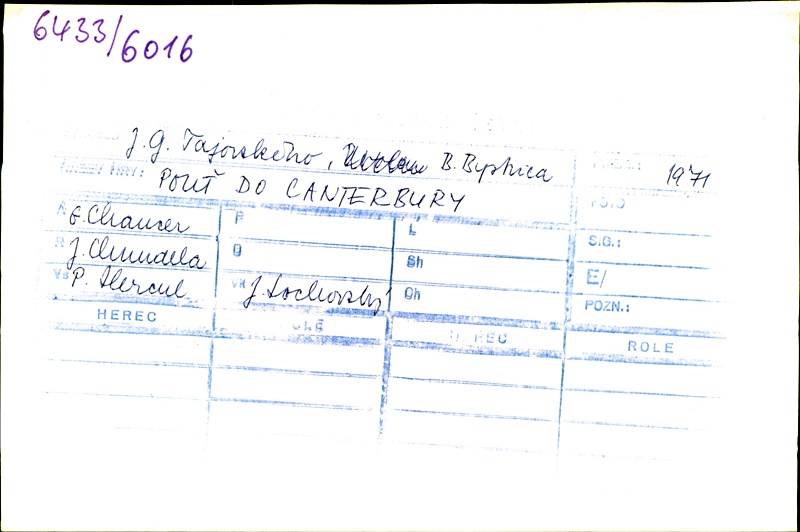 6433/6016
J.G. Tajovského, B. Bystrica 1971
NÁZEV HRY: POUŤ DO CANTERBURY FOTO
A G. Chaucer P L S.G.:
R J. Chmuada O Sh E/
Vs P. Hercul VK J. Lochovský Ch POZN.:
HEREC ROLE HEREC ROLE